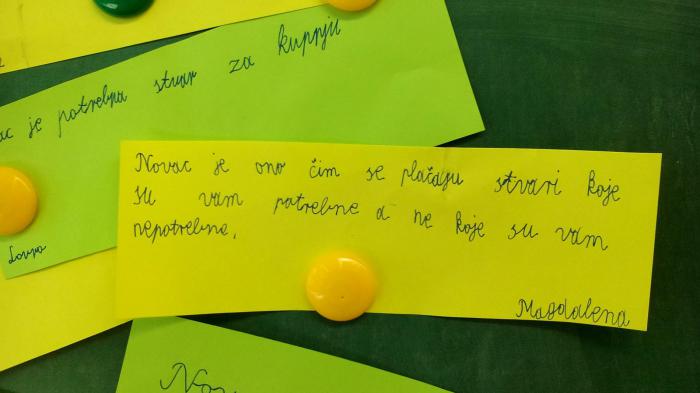 je potrebna stvar za kupnju
Lovro
Novac je ono čim se plačaju stvari koje
su vam potrebne a ne koje su vam
nepotrebne.
Magdalena